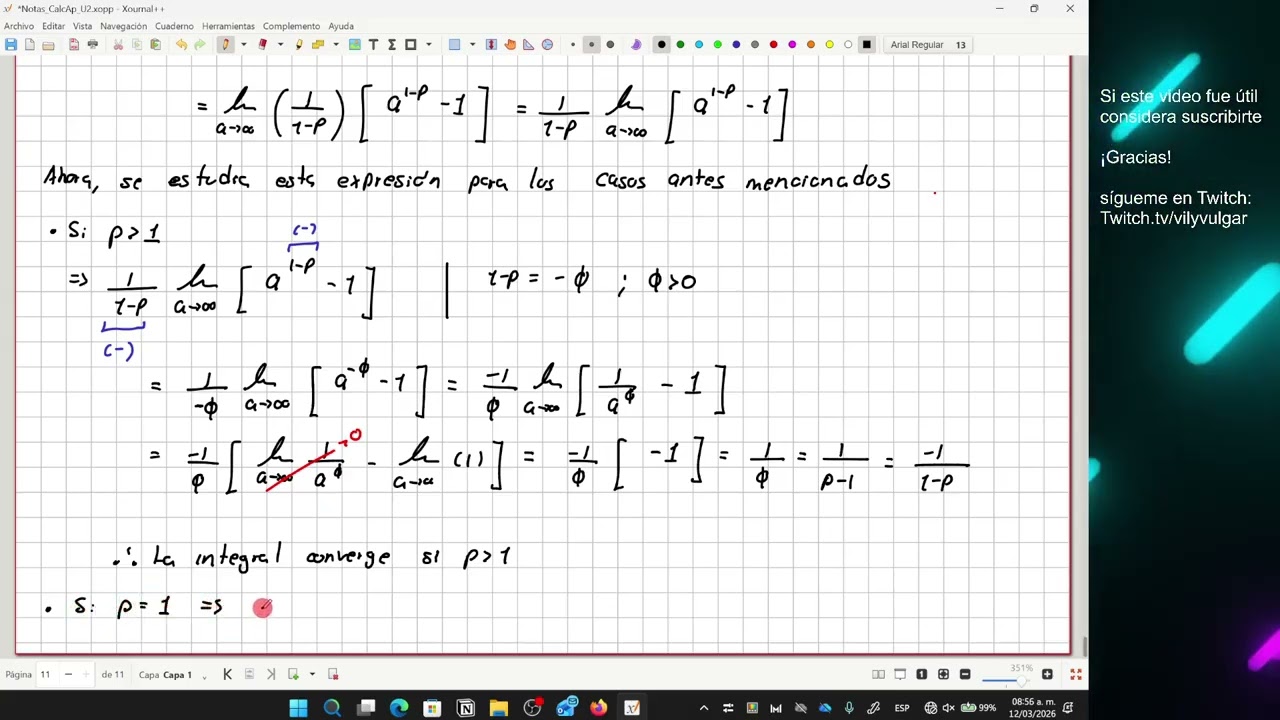 *Notas_CalcAp_U2.xopp - Xournal++
Archivo Editar Vista Navegación Cuaderno Herramientas Complemento Ayuda
Arial Regular 13
= lim a→∞ (1/(1-p)) [a^(1-p) - 1] = 1/(1-p) lim a→∞ [a^(1-p) - 1]
Ahora, se estudia esta expresión para los casos antes mencionados
• Si p>1
(-)
=> 1/(1-p) lim a→∞ [a^(1-p) - 1] | 1-p = -ϕ ; ϕ>0
(-)
= 1/-ϕ lim a→∞ [a^(-ϕ) - 1] = -1/ϕ lim a→∞ [1/a^ϕ - 1]
= -1/ϕ [lim a→∞ 1/a^ϕ →0 - lim a→∞ (1)] = -1/ϕ [ -1] = 1/ϕ = 1/(p-1) = -1/(1-p)
∴ La integral converge si p>1
• Si p = 1 =>
Página 11 de 11 Capa Capa 1 351%
Si este video fue útil
considera suscribirte
¡Gracias!
sígueme en Twitch:
Twitch.tv/vilyvulgar
ESP 99% 08:56 a. m.
12/03/2026